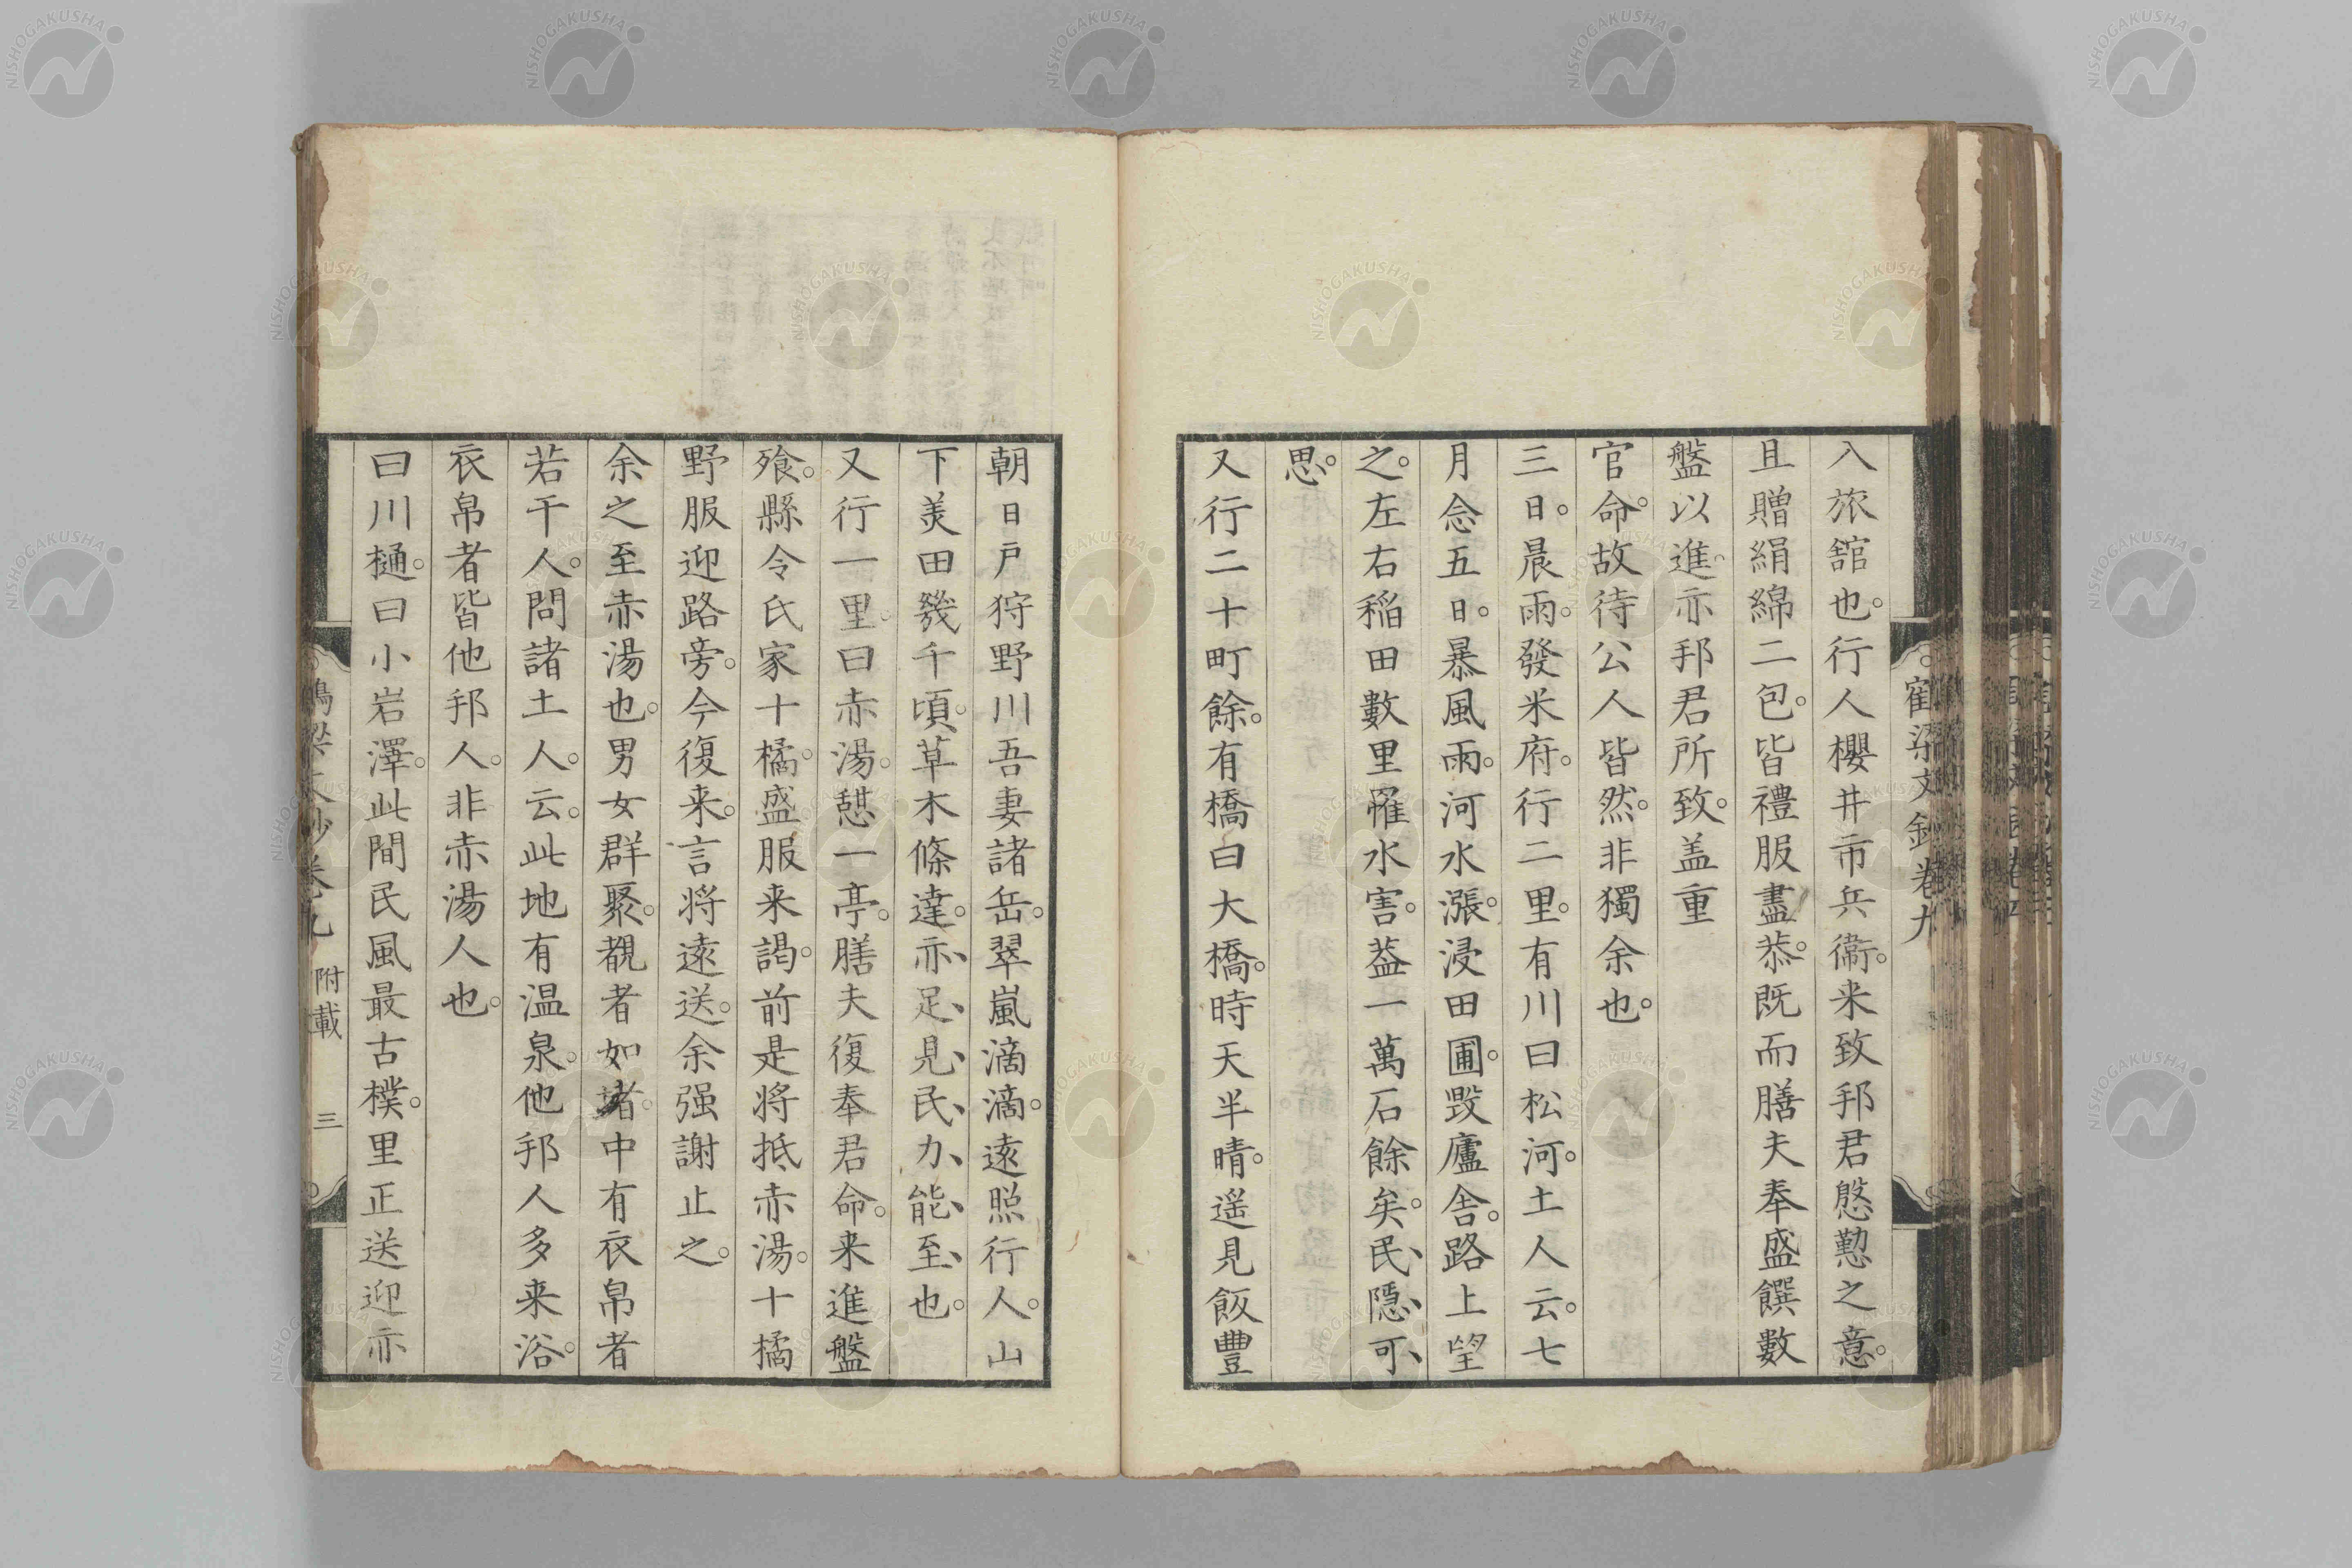 入旅舘也。行人櫻井市兵衞。来致邦君慇懃之意。
且贈絹綿二包。皆禮服盡恭。既而膳夫奉盛饌數
盤以進。亦邦君所致。盖重
官命。故待公人皆然。非獨余也。
三日。晨雨。發米府。行二里。有川曰松河。土人云。七
月念五日。暴風雨。河水漲。浸田圃。毀廬舍。路上望
之。左右稲田數里罹水害。葢一萬石餘矣。民隠可
思。
又行二十町餘。有橋曰大橋。時天半晴。遥見飯豐
朝日戸狩野川吾妻諸岳。翠嵐滴滴。遠照行人。山
下美田幾千頃。草木條達。亦足見民力能至也。
又行一里。曰赤湯。憇一亭。膳夫復奉君命。来進盤
飱。縣令氏家十橘。盛服来謁。前是将抵赤湯。十橘
野服迎路旁。今復来。言将遠送。余强謝止之。
余之至赤湯也。男女群聚。覩者如堵。中有衣帛者
若干人。問諸土人。云。此地有温泉。他邦人多来浴。
衣帛者皆他邦人。非赤湯人也。
曰川樋。曰小岩澤。此間民風最古樸。里正送迎亦
寉梁文鈔卷九
鶴梁文鈔卷九 附載 三
NISHOGAKUSHA